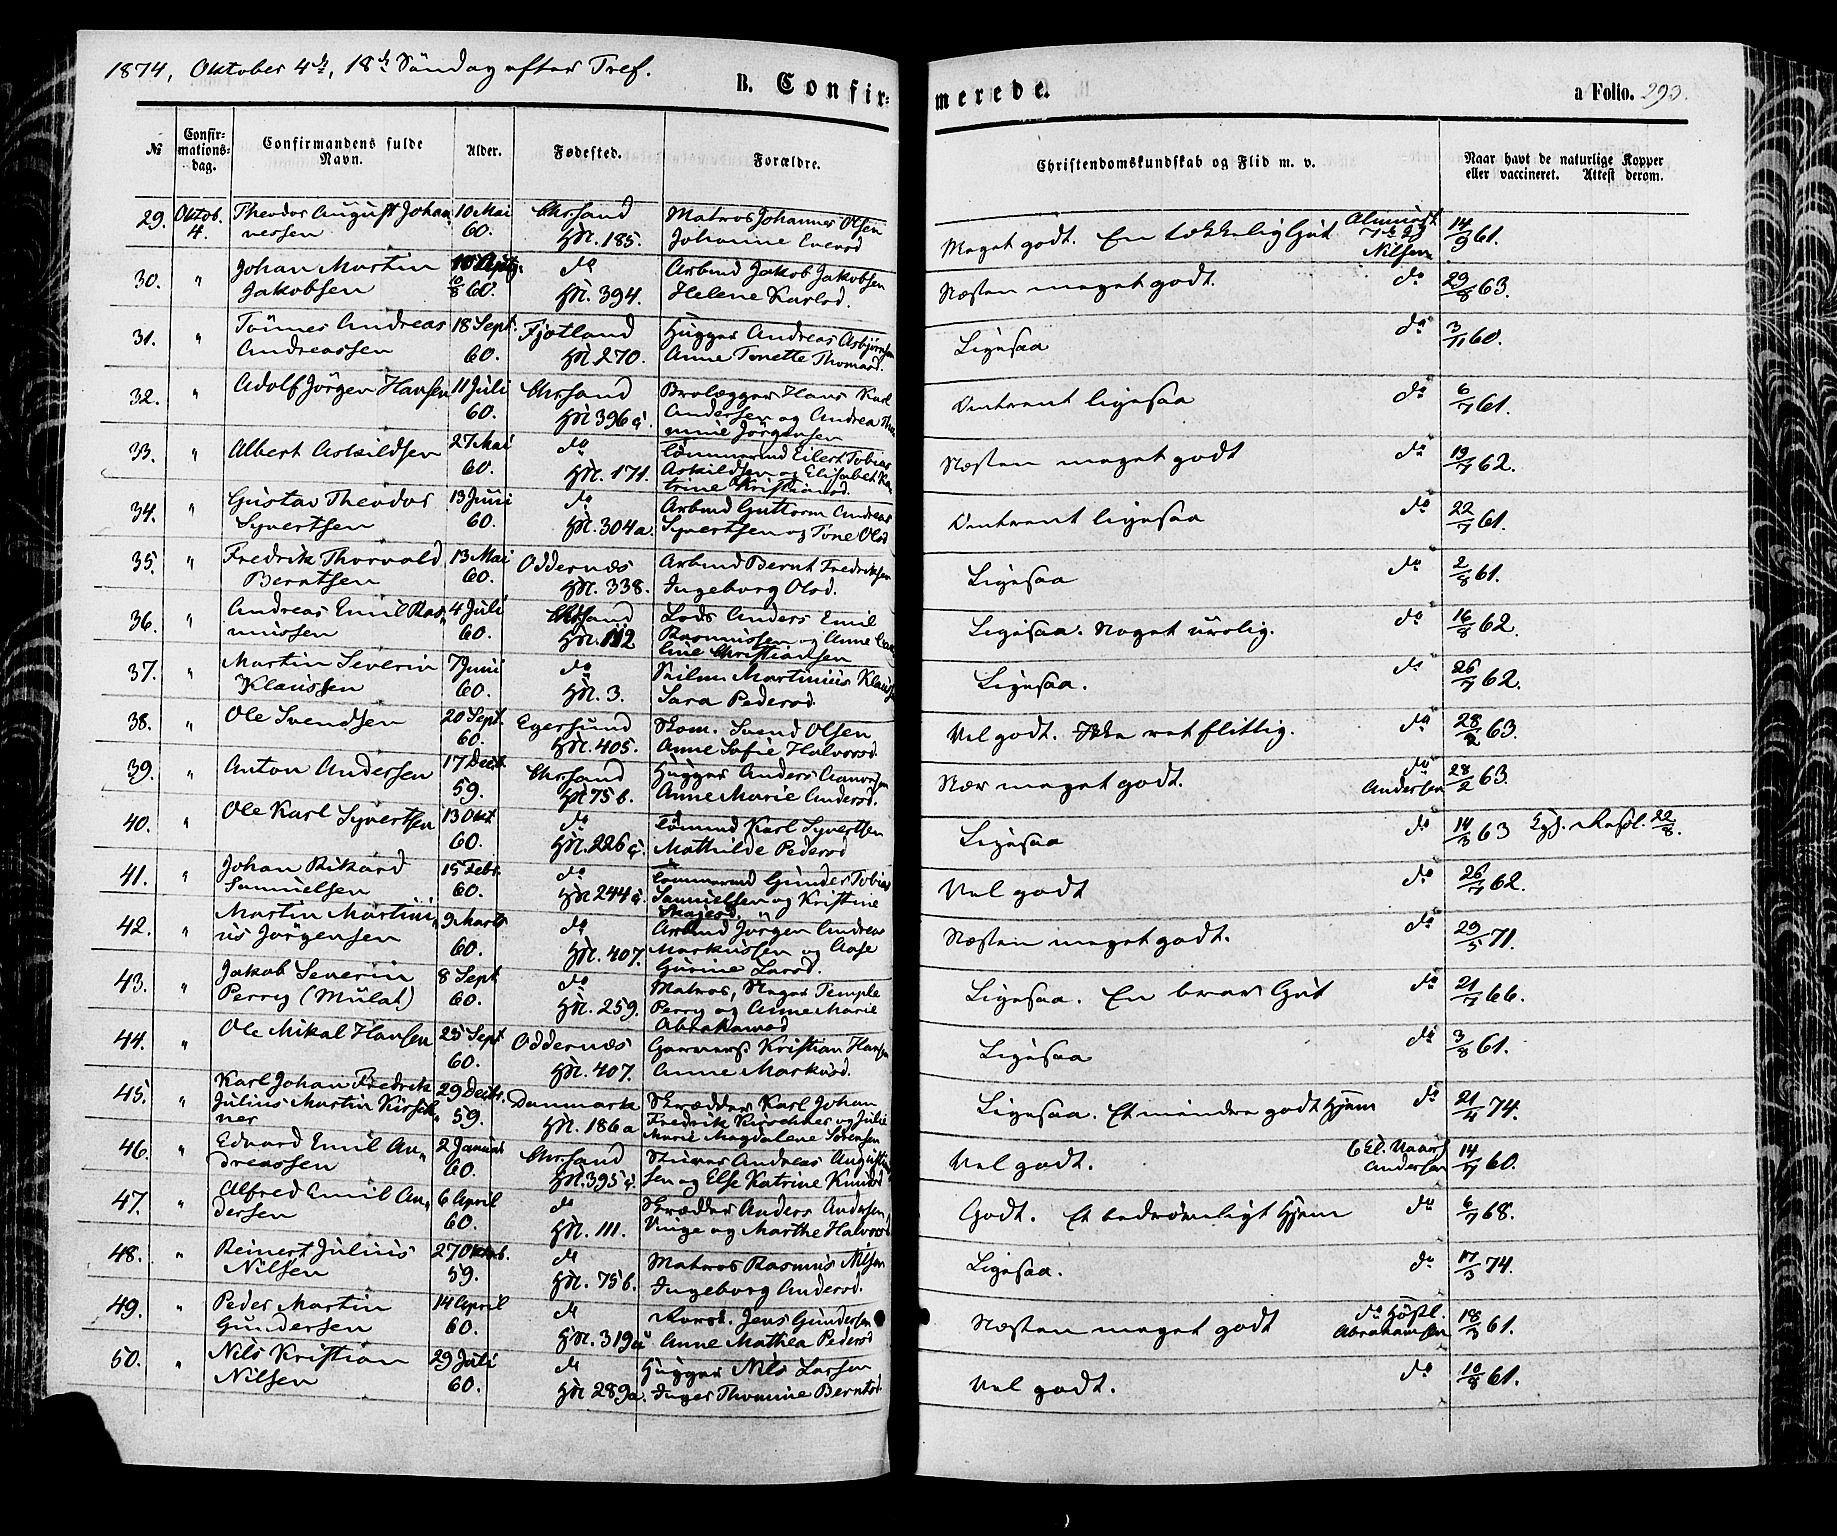 1874, Oktober 4de, 18de Søndag efter Tref.
B. Confirmerede.
a Folio. 293.
№ Confirmationsdag. Confirmandens fulde Navn. Alder. Fødested. Forældre. Christendomskundskab og Flid m. v. Naar havt de naturlige Kopper eller vaccineret. Attest derom.
29. Oktob. Theodor August Johan 10 Mai Chrsand Matros Johannes Olsen Almueskl.
4. nessen 60. HN. 185. Johanne Evensd Meget godt. En tækkelig Gut Nilsen 14/9 61.
30. " Johan Martin do Arbmd Jakob Jakobsen Næsten meget godt. do 29/8 63.
Jakobsen 10/8 60. HN. 394. Helene Karlsd.
31. " Tönnes Andreas 18 Sept. Fjotland Hugger Andreas Asbjörnsen Ligesaa do 3/11 60.
Andreassen 60. HN 270. Anne Tonette Thomasd.
32. " Adolf Jörgen Hansen 11 Juli Chrsand Brolægger Hans Karl Omtrent ligesaa do 6/7 61.
60. HN 396 Andersen og Andrea
Jörgensen
33. " Albert Askildsen 27 Mai do Tömmermd Eilert Tobias Næsten meget godt do 19/7 62.
60. HN. 171. Askildsen og Elisabet Ka
trine Kristiansd.
34. " Gustav Theodor 13 Juni do Arbmd Guttorm Andreas Omtrent ligesaa do 22/7 61.
Syvertsen 60. HN. 304a. Syvertsen og Tone Olsd
35. " Fredrik Thorvald 13 Mai Oddernæs Arbmd Bernt Fredriksen Ligesaa do 2/8 61.
Berntsen 60. HN. 338. Ingeborg Olsd.
36. " Andreas Emil Ras 4 Juli Chrsand Lods Anders Emil Ligesaa. Noget urolig. do 16/8 62.
mussen 60. HN. 112 Rasmussen og Anne
line Christiansen
37. " Martin Severin 7 Juni do Seilm Martinius Klausen Ligesaa. do 26/7 62.
Klaussen 60. HN. 3. Sara Pedersd.
38. " Ole Svendsen 20 Sept. Egersund Skom. Svend Olsen Vel godt. Ikke ret flittig. do 28/2 63.
60. HN. 405. Anne Sofie Halvorsd.
39. " Anton Andersen 17 Decb. Chrsand Hugger Anders Aanonsen Nær meget godt. do Andersen 28/2 63.
59. HN 75b. Anne Marie Andersd.
40. " Ole Karl Syvertsen 13 Okt do Tömmd Karl Syvertsen Ligesaa do 14/3 63 22/8.
60. HN. 226 Mathilde Pedersd
41. " Johan Rikard 15 Febr. do Tömmermd Gunder Tobias Vel godt do 26/7 62.
Samuelsen 60. HN 244 Samuelsen og Kristine
42. " Martin Martini 9 Marts do Arbmd Jörgen Andreas Næsten meget godt. do 29/5 71.
us Jörgensen 60. HN. 407. Markussen og Aase
Gurine Larsd.
43. " Jakob Severin 8 Sept do Matros, Neger Temple Ligesaa. En brav Gut do 21/7 66.
Perry (Mulat) 60. HN. 259. Perry og Anne Marie
Abrahamsd
44. " Ole Mikal Hansen 25 Sept Oddernæs Garvers. Kristian Hansen Ligesaa do 3/8 61.
60. HN. 407. Anne Markusd.
45. " Karl Johan Fredrik 29 Decbr. Danmark Skrædder Karl Johan Ligesaa. Et mindre godt Hjem do 21/4 74.
Julius Martin Kirsch 59. HN. 186a Fredrik Kirschner og Julie
ner Marie Magdalene Sörensen
46. " Edvard Emil An 2 Januar Chrsand Stuver Andreas Augustin Vel godt. Andersen 14/7 60.
dreassen 60. HN. 395 sen og Else Katrine Knudsd
47. " Alfred Emil An 6 April do Skrædder Anders Andersen Godt. Et bedröveligt Hjem do 6/7 68.
dersen 60. HN. 111. Vinge og Marthe Halvorsd
48. " Reinert Julius 27 Oktob. do Matros Rasmus Nilsen Ligesaa. do 17/3 74.
Nilsen 59. HN. 75b. Ingeborg Andersd.
49. " Peder Martin 14 April do Jens Gundersen Næsten meget godt do Abrahamsen 18/3 61.
Gundersen 60. HN. 319a Anne Mathea Pedersd
50. " Nils Kristian 29 Juli do Hugger Nils Larsen Vel godt. do 10/8 61.
Nilsen 60. HN. 289a. Inger Thomine Berntsd.